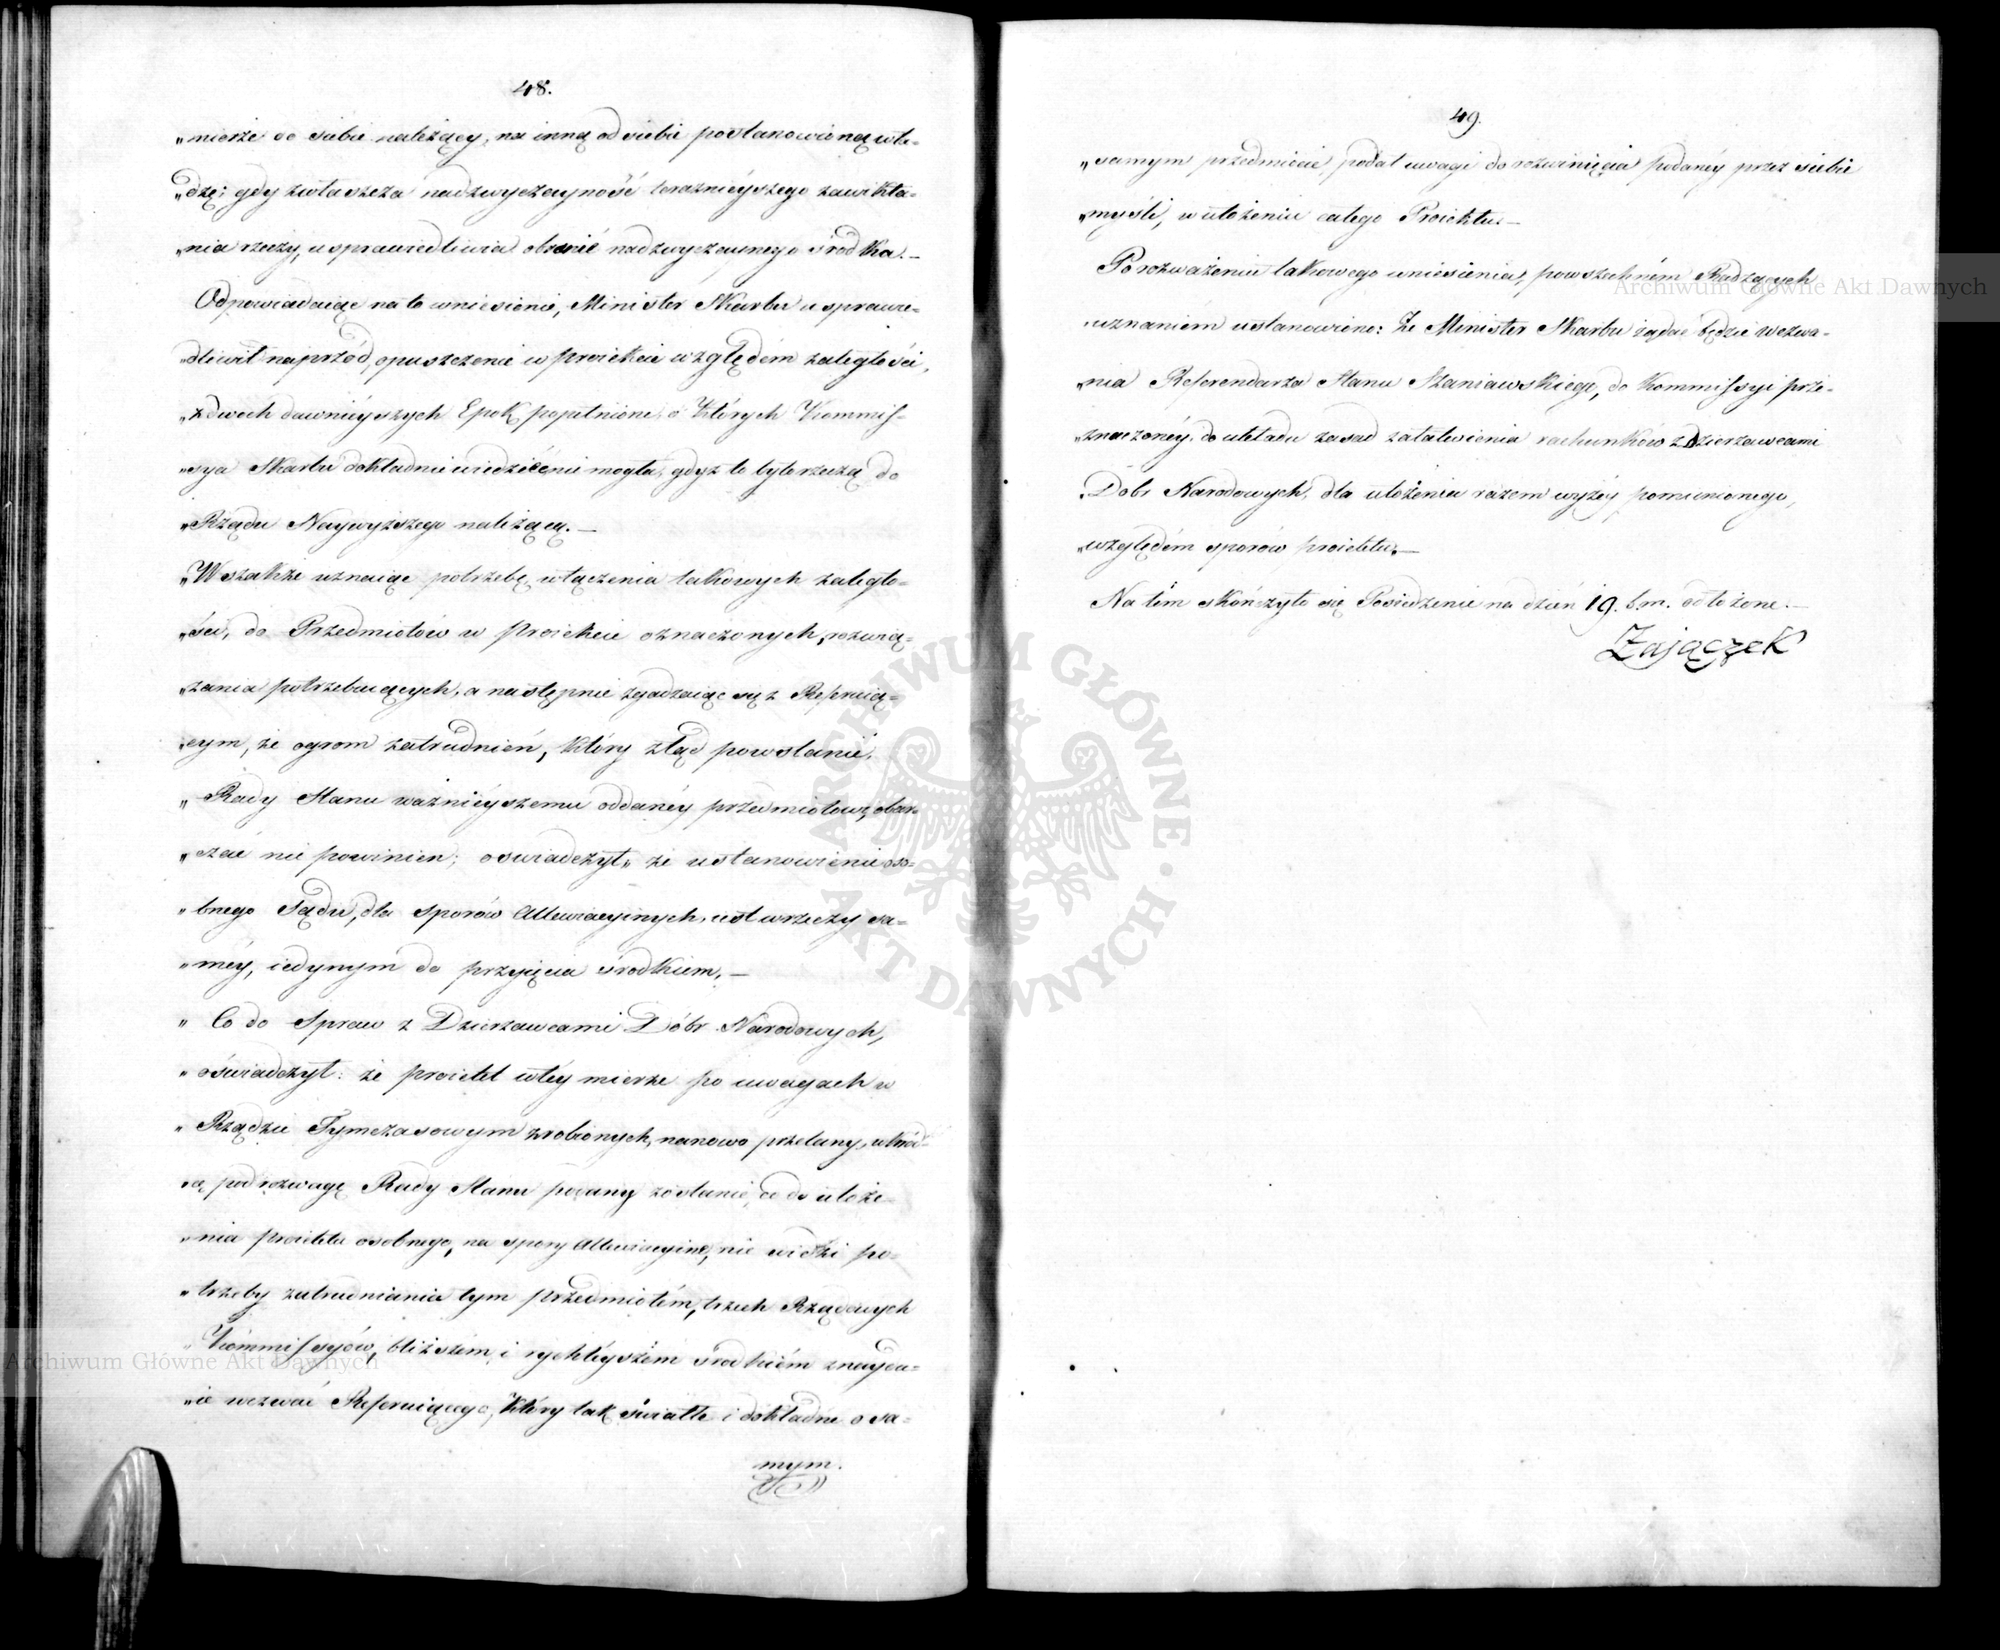 48.
„mierze do siebie należący, na inną od siebie postanowioną wła-
„dzę; gdy zwłaszcza nadzwyczayność teraznieyszego zawikła-
„nia rzeczy, usprawiedliwia obranie nadzwyczaynego środka.—
Odpowiadaiąc na to wniesienie, Minister Skarbu usprawie-
„dliwił naprzód, opuszczenie w proiekcie względem zaległości,
„z dwoch dawnieyszych Epok popełnione, o których Kommis-
„sya Skarbu dokładnie wiedzieć nie mogła, gdyż to było rzeczą do
„Rządu Naywyższego należącą.—
„Wszakże uznaiąc potrzebę włączenia takowych zaległo-
„ści, do Przedmiotów w Proiekcie oznaczonych, rozwią-
„zania potrzebuiących, a następnie zgadzaiąc się z Referuią-
„cym, że ogrom zatrudnień, który ztąd powstanie,
„Rady Stanu ważnieyszemu oddanéy przedmiotowi, obar-
„czać nie powinien; oswiadczył, że ustanowienie oso-
„bnego Sądu, dla Sporów Allewiacyinych, iest w rzeczy sa-
„méy, iedynym do przyięcia środkiem.—
„Co do Spraw z Dzierzawcami Dóbr Narodowych,
„oświadczył: że proiekt w téy mierze po uwagach w
„Rządzie Tymczasowym zrobionych, nanowo przelany, wkrót-
„ce pod rozwagę Rady Stanu podany zostanie, co do ułoże-
„nia proiektu osobnego, na spory Allewiacyine, nie widzi po-
„trzeby zatrudniania tym przedmiotem, trzech Rządowych
„Kommissyów, bliższém i rychléyszém środkiém znaydu-
„ie wezwać Referuiącego, który tak światle i dokładnie o sa-
mym.
49.
„samym przedmiecie, podał uwagi do rozwinięcia podanéy przez siebie
„myśli, w ułożeniu całego Proiektu.—
Po rozważeniu takowego wniesienia, powszechném Radzących
„uznaniem ustanowiono: Że Minister Skarbu żądać będzie wezwa-
„nia Referendarza Stanu Szaniawskiego, do Kommissyi prze-
„znaczonéy do układu zasad załatwienia rachunków z Dzierzawcami
„Dobr Narodowych, dla ułożenia razem wyżéy pomienionego,
„względém sporów proiektu.—
Na tém skończyło się Posiedzenie na dzień 19. b.m. odłożone.—
Zajączek
ARCHIWUM GŁÓWNE AKT DAWNYCH
Archiwum Główne Akt Dawnych
Archiwum Główne Akt Dawnych